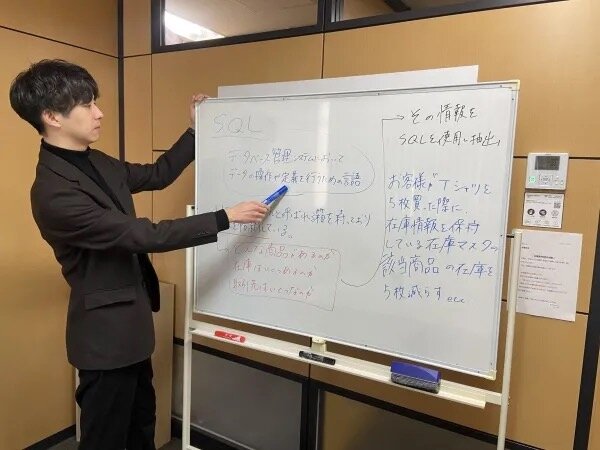 SQL
データベース管理システムにおいて
データの操作や定義を行うための言語
と呼ばれる箱を持っており
どんな商品があるのか
在庫はいくつあるのか
その情報を
SQLを使用し抽出
お客様がTシャツを
5枚買った際に
在庫情報を保持
している在庫マスタの
該当商品の在庫を
5枚減らす etc